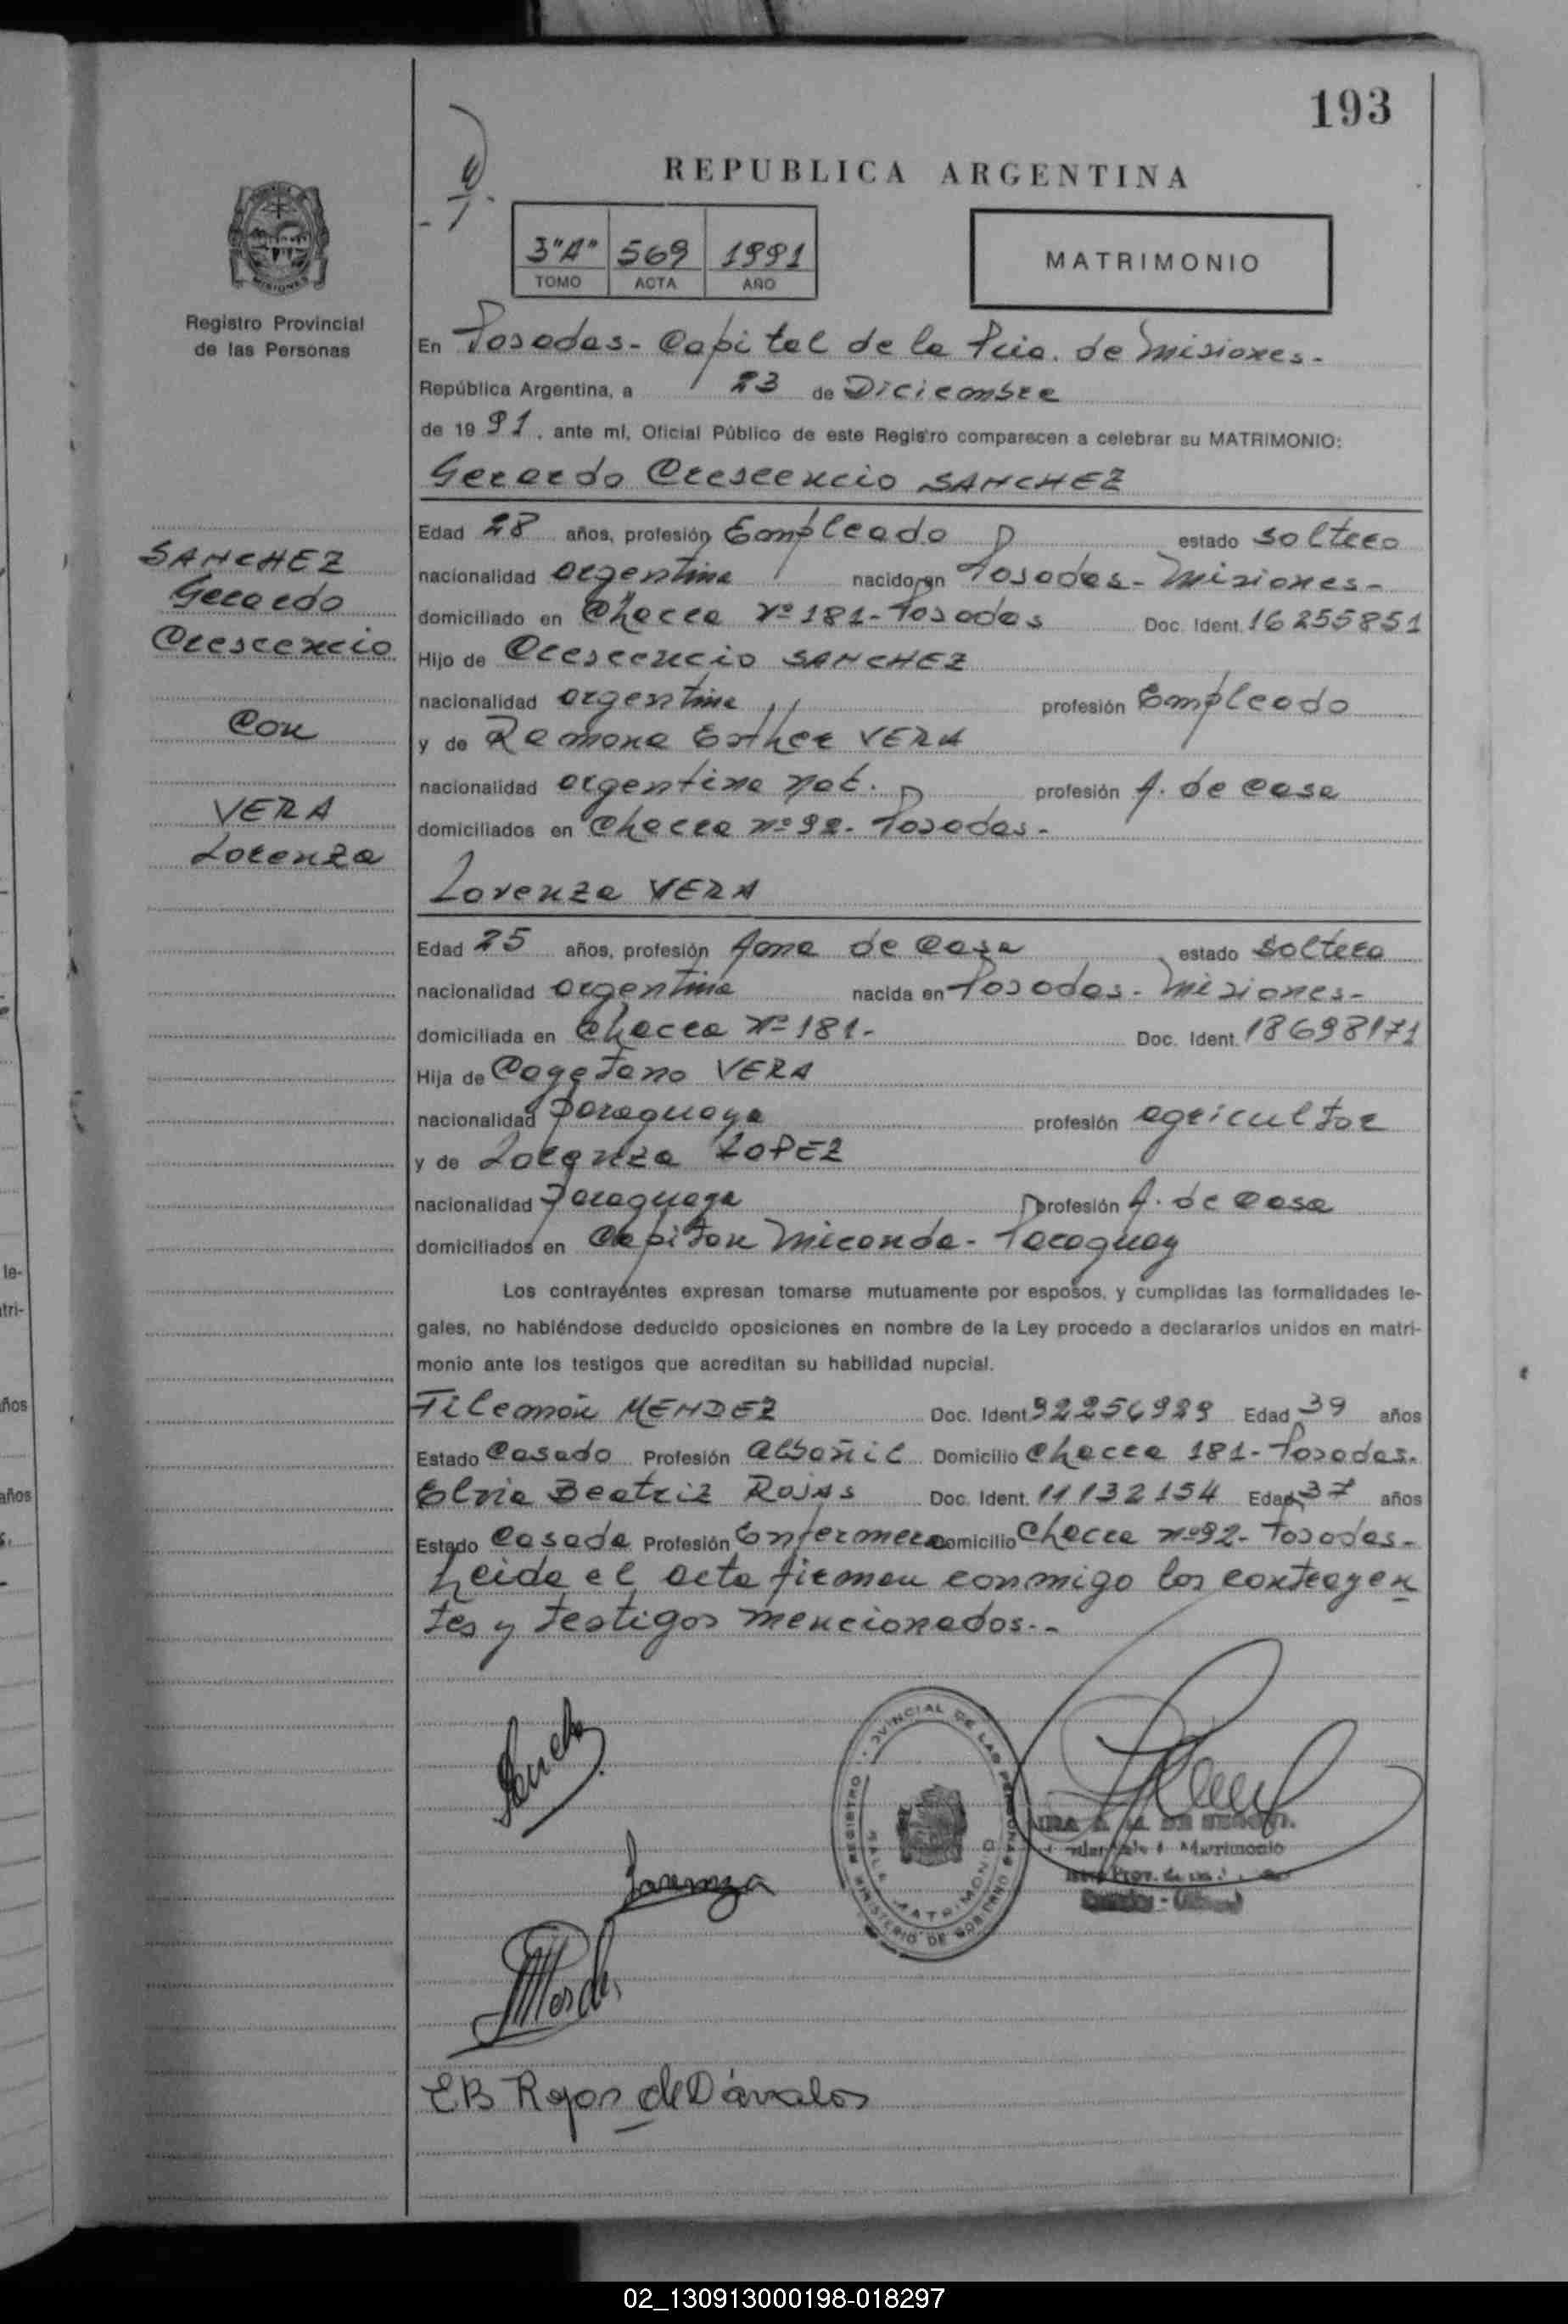 193
REPUBLICA ARGENTINA
3"A" 569 1991
TOMO ACTA AÑO
MATRIMONIO
Registro Provincial
de las Personas
En Posadas - Capital de la Pcia. de Misiones -
República Argentina, a 23 de Diciembre
de 1991, ante mí, Oficial Público de este Registro comparecen a celebrar su MATRIMONIO:
Gerardo Crescencio SANCHEZ
Edad 28 años, profesión Empleado estado soltero
nacionalidad argentina nacido en Posadas - Misiones -
domiciliado en Chacra Nº 181 - Posadas Doc. Ident. 16255851
Hijo de Crescencio SANCHEZ
nacionalidad argentina profesión Empleado
y de Ramona Esther VERA
nacionalidad argentina nat. profesión A. de casa
domiciliados en Chacra nº 92 - Posadas -
SANCHEZ
Gerardo
Crescencio
con
VERA
Lorenza
Lorenza VERA
Edad 25 años, profesión Ama de Casa estado soltera
nacionalidad argentina nacida en Posadas - Misiones -
domiciliada en Chacra Nº 181 - Doc. Ident. 18698171
Hija de Cayetano VERA
nacionalidad paraguaya profesión agricultor
y de Lorenza LOPEZ
nacionalidad paraguaya profesión A. de casa
domiciliados en Capitan Miranda - Paraguay
Los contrayentes expresan tomarse mutuamente por esposos, y cumplidas las formalidades le-
gales, no habiéndose deducido oposiciones en nombre de la Ley procedo a declararlos unidos en matri-
monio ante los testigos que acreditan su habilidad nupcial.
Filemón MENDEZ Doc. Ident. Edad 39 años
Estado Casado Profesión albañil Domicilio Chacra 181 - Posadas.
Elvia Beatriz ROJAS Doc. Ident. 11132154 Edad 37 años
Estado Casada Profesión Enfermera Domicilio Chacra nº 92 - Posadas -
Leida el acta firman conmigo los contrayen
tes y testigos mencionados. -
REGISTRO PROVINCIAL DE LAS PERSONAS
MINISTERIO DE GOBIERNO
MATRIMONIO
Lorenza
EB Rojas de Dávalos
02_130913000198-018297